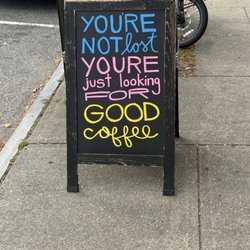 YOU'RE
NOT lost
YOURE
just looking
FOR
GOOD
coffee